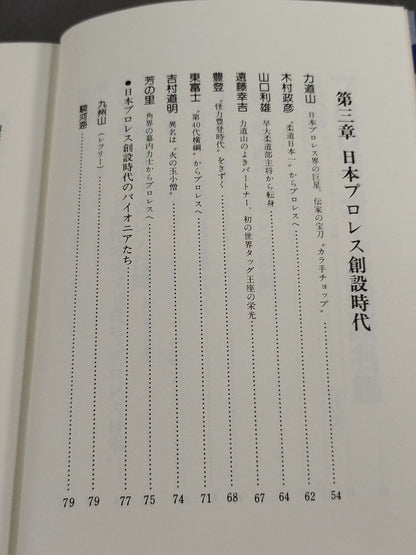 第三章 日本プロレス創設時代
力道山 日本プロレス界の巨星、伝家の宝刀〝カラ手チョップ〟 54
木村政彦 〝柔道日本一〟からプロレスへ 62
山口利雄 早大柔道部主将から転身 64
遠藤幸吉 力道山のよきパートナー、初の世界タッグ王座の栄光 67
豊登 〝怪力豊登時代〟をきずく 68
東富士 〝第40代横綱〟からプロレスへ 71
吉村道明 異名は〝火の玉小僧〟 74
芳の里 角界の幕内力士からプロレスへ 75
●日本プロレス創設時代のパイオニアたち 77
九州山 (レフリー) 79
駿河海 79